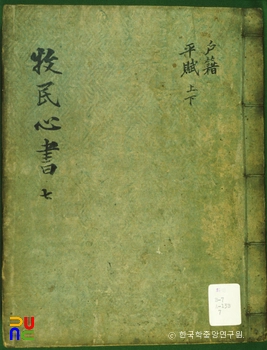 戶籍
平賦 上下
牧民心書 七
© 한국학중앙연구원